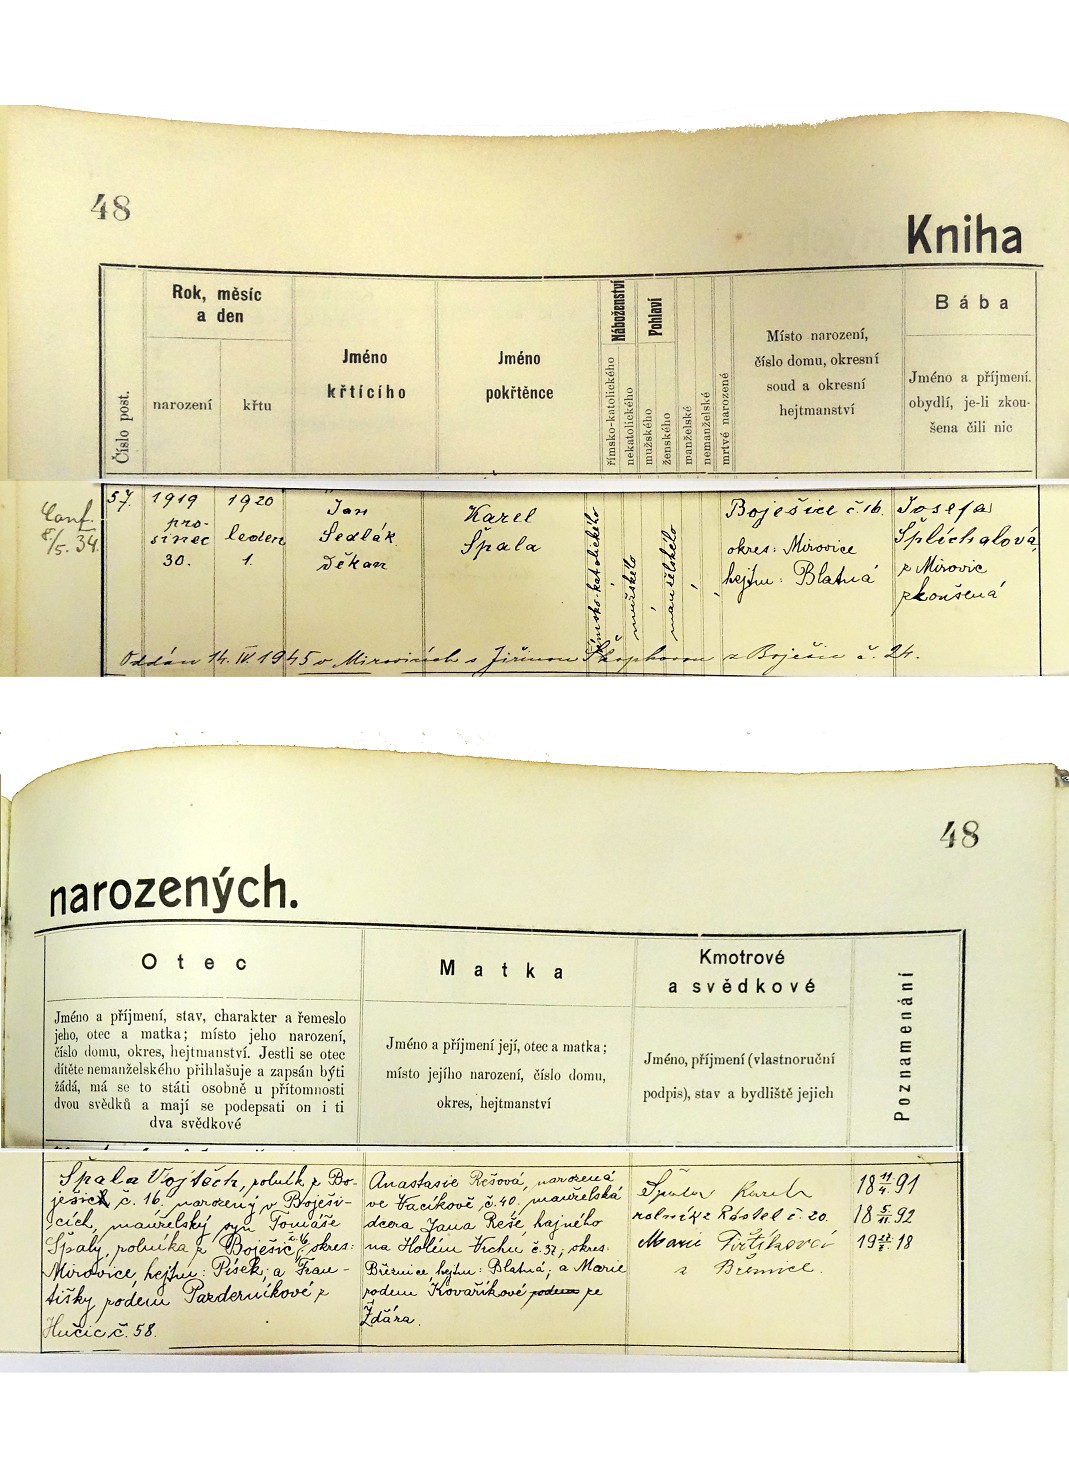 48
Kniha
Číslo post.
Rok, měsíc
a den
narození
křtu
Jméno
křtícího
Jméno
pokřtěnce
Náboženství
římsko-katolického
nekatolického
Pohlaví
mužského
ženského
manželské
nemanželské
mrtvé narozené
Místo narození,
číslo domu, okresní
soud a okresní
hejtmanství
Bába
Jméno a příjmení.
obydlí, je-li zkou-
šena čili nic
Conf.
8/5. 34.
57.
1919
pro-
sinec
30.
1920
leden
1.
Jan
Sedlák
děkan
Karel
Špala
římsko-katolického
mužského
manželského
Boješice č. 16.
okres: Mirovice
hejtm: Blatná
Josefa
Šplíchalová,
z Mirovic
zkoušená
Oddán 14. IV. 1945 v Mirovicích s Jiřinou z Boješic č. 24.
48
narozených.
Otec
Jméno a příjmení, stav, charakter a řemeslo
jeho, otec a matka; místo jeho narození,
číslo domu, okres, hejtmanství. Jestli se otec
dítěte nemanželského přihlašuje a zapsán býti
žádá, má se to státi osobně u přítomnosti
dvou svědků a mají se podepsati on i ti
dva svědkové
Matka
Jméno a příjmení její, otec a matka;
místo jejího narození, číslo domu,
okres, hejtmanství
Kmotrové
a svědkové
Jméno, příjmení (vlastnoruční
podpis), stav a bydliště jejich
Poznamenání
Špala Vojtěch, rolník z Bo-
ješic č. 16, narozený v Boješi-
cích, manželský syn Tomáše
Špaly, rolníka z Boješic č. 16, okres:
Mirovice, hejtm: Písek; a Fran-
tišky rodem Pazderníkové z
Hučic č. 58.
Anastasie Rešová, narozená
ve Vacíkově č. 40, manželská
dcera Jana Reše, hajného
na Holém Vrchu č. 37; okres
Březnice, hejtm: Blatná; a Marie
rodem Kovaříkové rodem ze
Ždára.
Špála Karel
rolník z Rástel č. 20.
Marie
z Březnice.
18 11/4. 91
18 5/11. 92
19 18